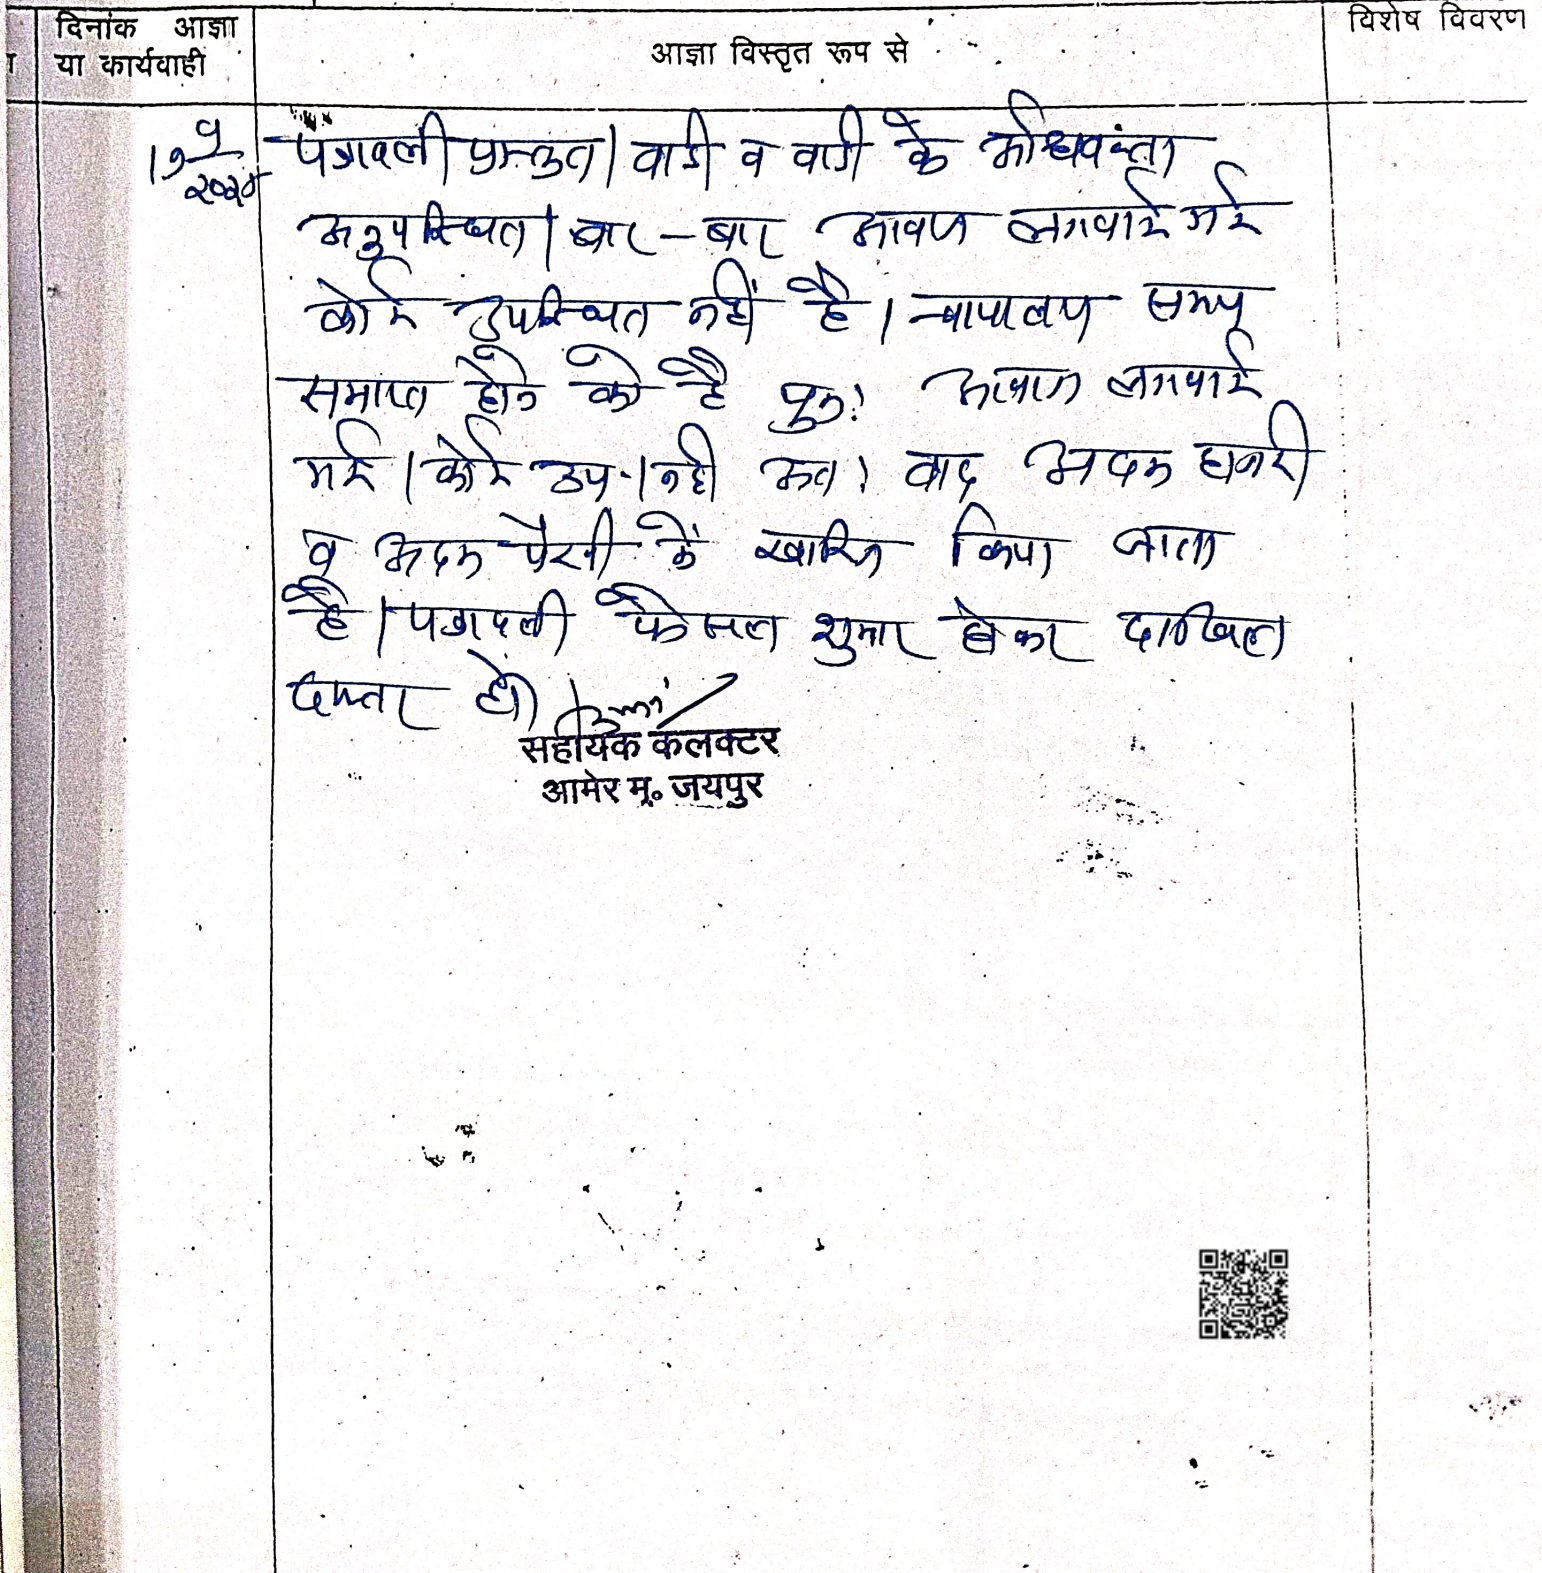 दिनांक आज्ञा
या कार्यवाही
आज्ञा विस्तृत रूप से
विशेष विवरण
पत्रावली प्रस्तुत। वादी व वादी के अधिवक्ता
अनुपस्थित। बार-बार आवाज लगवाई गई
कोई उपस्थित नहीं है। न्यायालय समय
समाप्त होने को है पुनः आवाज लगवाई
गई। कोई उप. नही अतः वाद अदम हाजरी
व अदम पैरवी में खारिज किया जाता
है। पत्रावली फैसल शुमार होकर दाखिल
दफ्तर हो।
सहायक कलक्टर
आमेर मु. जयपुर